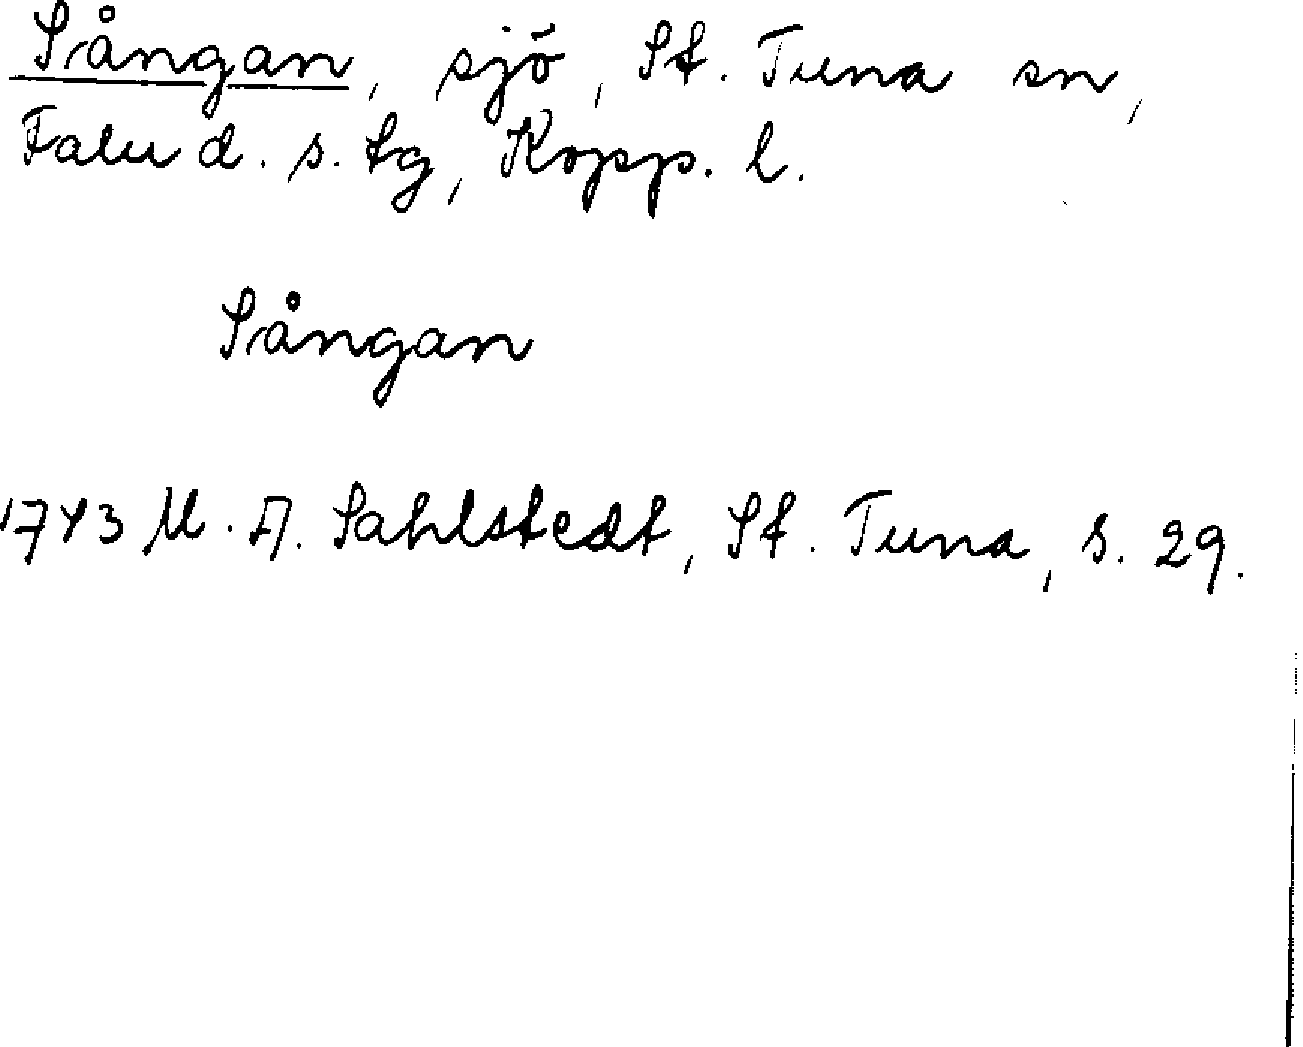 Sången, sjö, St. Tuna sn,
Falu d. s. tg, Kopp. l.
Sångan
1743 M. A. Sahlstedt, St. Tuna, s. 29.